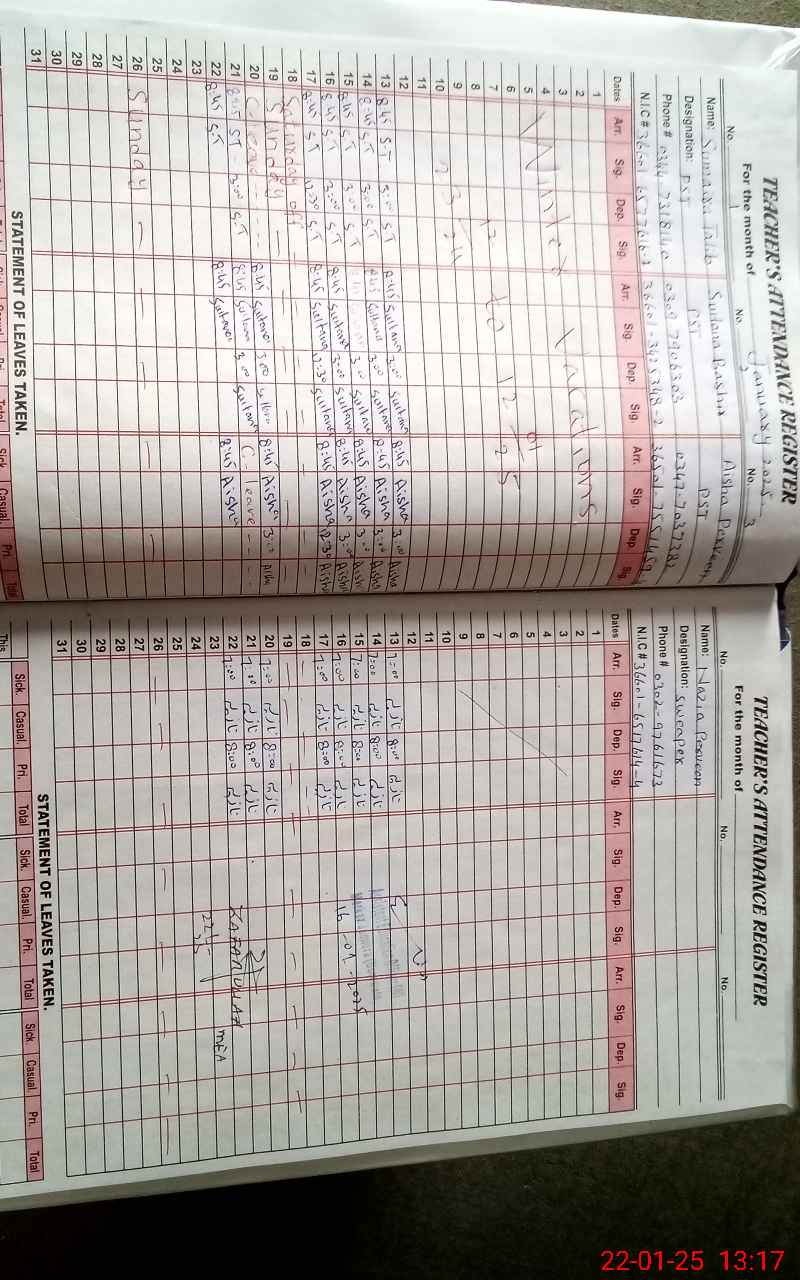 TEACHER'S ATTENDANCE REGISTER
For the month of January 2025
No. 1 No. 2 No. 3
Name: Sumaira Talib Sultana Bashir Aisha Perveen
Designation: PST PST PST
Phone # 0309 7906303 0347-7037382
N.I.C #
Dates Arr. Sig. Dep. Sig. Arr. Sig. Dep. Sig. Arr. Sig. Dep. Sig.
1
2
3
4
5
6
7
8
9
10
11
12
Winter Vacations
23-12-24 to 12-01-25
13 8:45 S.T 3:00 S.T 8:45 Sultana 3:00 Sultana 8:45 Aisha 3:00 Aisha
14 8:45 S.T 3:00 S.T 8:45 Sultana 3:00 Sultana 8:45 Aisha 3:00 Aisha
15 8:45 S.T 3:00 S.T 8:45 Sultana 3:00 Sultana 8:45 Aisha 3:00 Aisha
16 8:45 S.T 3:00 S.T 8:45 Sultana 3:00 Sultana 8:45 Aisha 3:00 Aisha
17 8:45 S.T 12:30 S.T 8:45 Sultana 12:30 Sultana 8:45 Aisha 12:30 Aisha
18 Saturday off
19 Sunday
20 C. leave 8:45 Sultana 3:00 Sultana 8:45 Aisha 3:00 Aisha
21 8:45 S.T 3:00 S.T 8:45 Sultana 3:00 Sultana C. leave
22 8:45 S.T 8:45 Sultana 8:45 Aisha
23
24
25
26 Sunday
27
28
29
30
31
STATEMENT OF LEAVES TAKEN.
Total Sick. Casual. Pri. Total
TEACHER'S ATTENDANCE REGISTER
For the month of
No. No. No.
Name: Nazia Perveen
Designation: Sweaper
Phone # 0302-9761673
N.I.C # 36601-6517614-4
Dates Arr. Sig. Dep. Sig. Arr. Sig. Dep. Sig. Arr. Sig. Dep. Sig.
1
2
3
4
5
6
7
8
9
10
11
12
13 7:00 نازیہ 8:00 نازیہ
14 7:00 نازیہ 8:00 نازیہ
15 7:00 نازیہ 8:00 نازیہ
16 7:00 نازیہ 8:00 نازیہ
16-01-2025
17 7:00 نازیہ 8:00 نازیہ
18
19
20 7:00 نازیہ 8:00 نازیہ
21 7:00 نازیہ 8:00 نازیہ
22 7:00 نازیہ 8:00 نازیہ
ZAFARULLAH MEA
23
24
25
26
27
28
29
30
31
STATEMENT OF LEAVES TAKEN.
Sick. Casual. Pri. Total Sick. Casual. Pri. Total Sick. Casual. Pri. Total
This
22-01-25 13:17